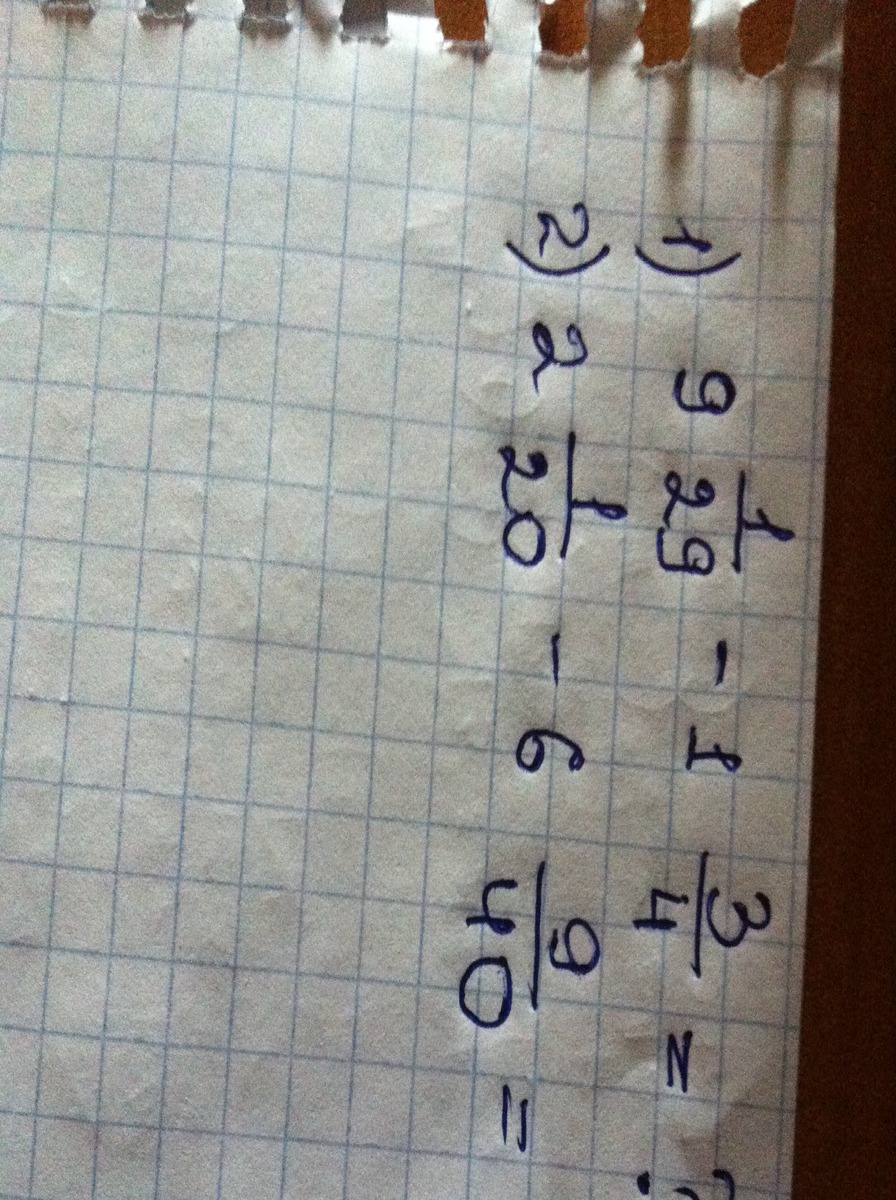 1) 9 1/29 - 1 3/4 = ?
2) 2 1/20 - 6 9/40 =